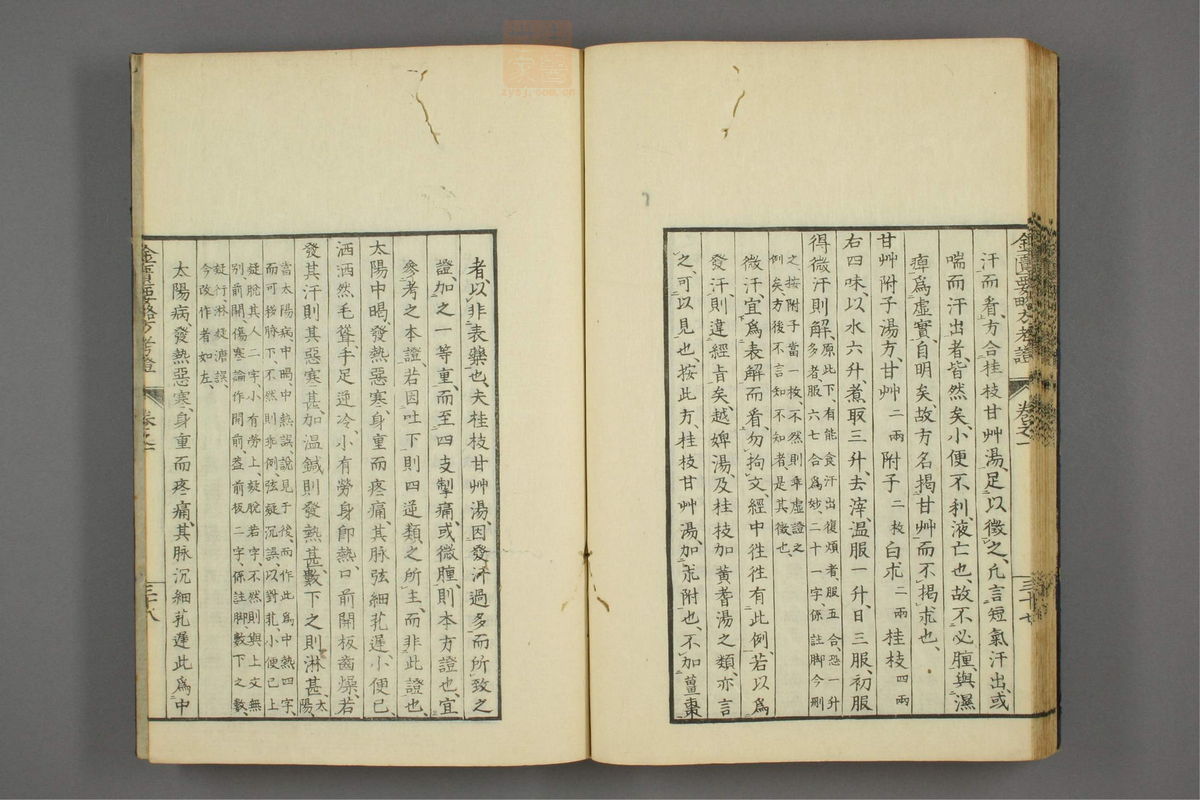 金匱要略方考證 卷之一 三十七
汗而看、方合桂枝甘艸湯、足以徵之、凡言短氣汗出、或
喘而汗出者皆然矣、小便不利、液亡也、故不必腫、與濕
痺爲虛實、自明矣、故方名揭甘艸、而不揭朮也、
甘艸附子湯方、甘艸二兩附子二枚白朮二兩桂枝四兩
右四味以水六升、煮取三升、去滓、温服一升、日三服、初服
得微汗則解、原此下、有能食汗出復煩者、服五合、恐一升
多者、服六七合爲妙、二十一字、係註脚今刪
之、按附子當一枚、不然則乖虛證之
例矣、方後不言如不知者、是其徵也、
微汗、宜爲表解而看、勿拘文、經中徃徃有此例、若以爲
發汗則違經旨矣、越婢湯、及桂枝加黃耆湯之類、亦言
之、可以見也、按此方、桂枝甘艸湯、加朮附也、不加薑棗
者、以非表藥也、夫桂枝甘艸湯、因發汗過多而所致之
證、加之一等重、而至四支掣痛、或微腫、則本方證也、宜
參考之本證、若因吐下則四逆類之所主、而非此證也、
太陽中暍、發熱惡寒、身重而疼痛、其脉弦細芤遲、小便已、
洒洒然毛聳、手足逆冷、小有勞身卽熱、口前開板齒燥、若
發其汗則其惡寒甚、加温鍼則發熱甚、數下之則淋甚、太陽、
當太陽病、中暍、中熱誤、說見于後、而作此爲中熱四字、
而可揩脉下、不然則非例、弦疑沉誤、以對芤、小便已上
疑脫其人二字、小有勞上、疑脫若字、不然則與上文無
別、前開傷寒論作開前、蓋前板二字、係註脚數下之數、
疑行、淋疑溏誤、
今改作者如左、
太陽病、發熱惡寒、身重而疼痛、其脉沉細芤遲、此爲中
金匱要略方考證 卷之一 三十八